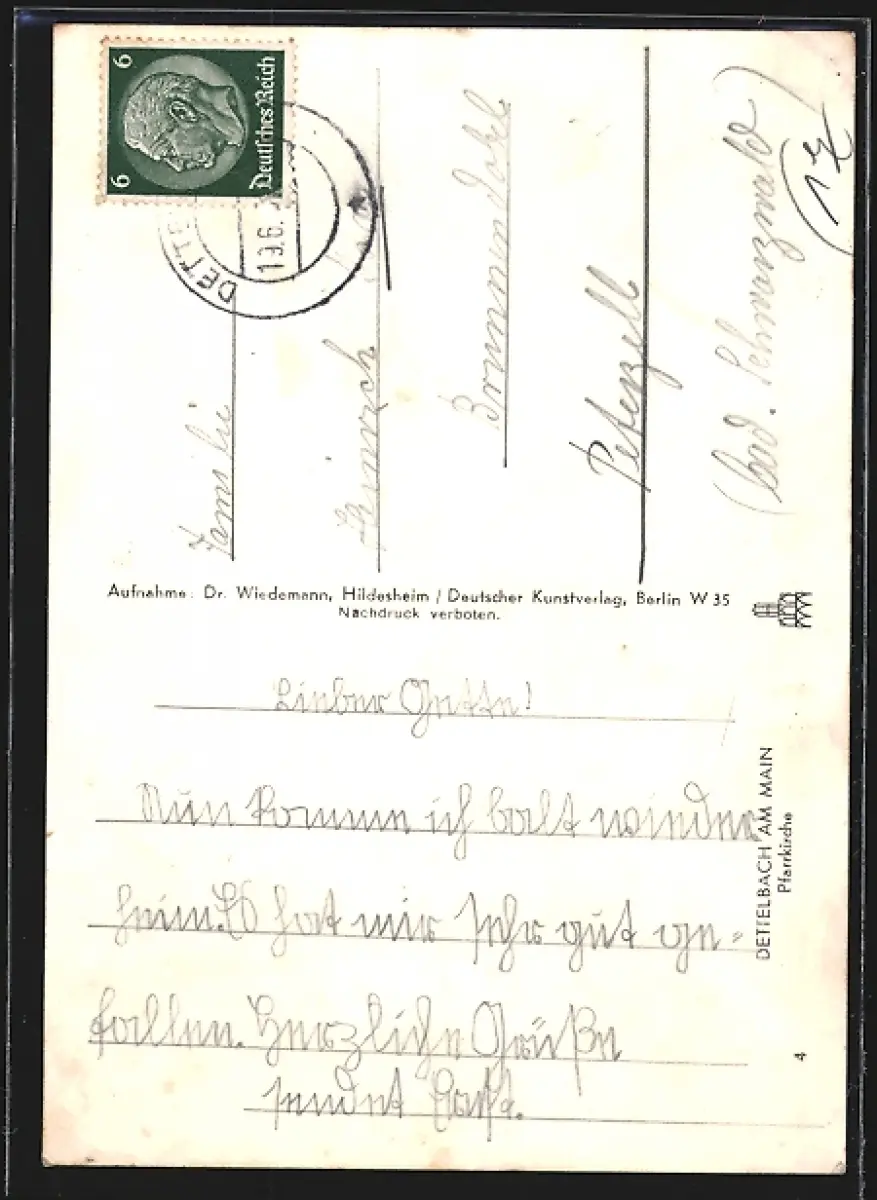 6 6
Deutsches Reich
DETTE
19.6.
Familie
Peterzell
(bad. Schwarzwald)
Aufnahme: Dr. Wiedemann, Hildesheim / Deutscher Kunstverlag, Berlin W 35
Nachdruck verboten.
Lieber Gette!
Nun komme ich balt wieder
heim. Es hat mir sehr gut ge=
fallen. Herzliche Grüße
sendet
DETTELBACH AM MAIN
Pfarrkirche
4